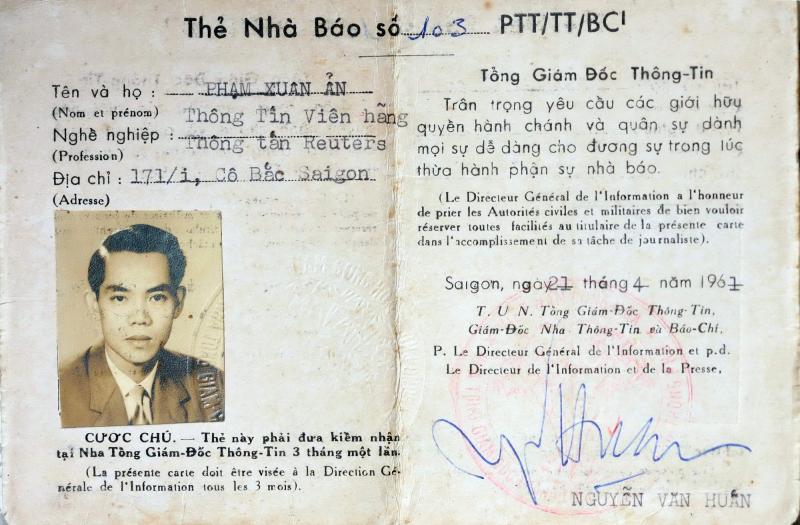 Thẻ Nhà Báo số 103 PTT/TT/BCI
Tên và họ : PHẠM XUÂN ẨN
(Nom et prénom) Thông Tín Viên hãng
Nghề nghiệp : Thông tấn Reuters
(Profession)
Địa chỉ : 171/i, Cô Bắc Saigon
(Adresse)
CƯỚC CHÚ. — Thẻ này phải đưa kiểm nhận
tại Nha Tổng Giám-Đốc Thông-Tin 3 tháng một lần.
(La présente carte doit être visée à la Direction Gé-
nérale de l'Information tous les 3 mois).
Tổng Giám Đốc Thông-Tin
Trân trọng yêu cầu các giới hữu
quyền hành chánh và quân sự dành
mọi sự dễ dàng cho đương sự trong lúc
thừa hành phận sự nhà báo.
(Le Directeur Général de l'Information a l'honneur
de prier les Autorités civiles et militaires de bien vouloir
réserver toutes facilités au titulaire de la présente carte
dans l'accomplissement de sa tâche de journaliste).
Saigon, ngày 21 tháng 4 năm 1961
T. U N. Tổng Giám-Đốc Thông-Tin,
Giám-Đốc Nha Thông-Tin và Báo-Chí,
P. Le Directeur Général de l'Information et p.d.
Le Directeur de l'Information et de la Presse,
NGUYỄN VĂN HUẤN